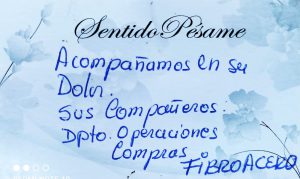 Sentido Pésame
Acompañamos en su
Dolor.
Sus Compañeros.
Dpto. Operaciones
Compras.
FIBROACERO